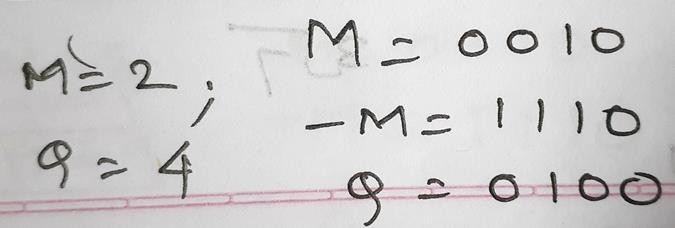 M = 2 ;
Q = 4
M = 0010
-M = 1110
Q = 0100